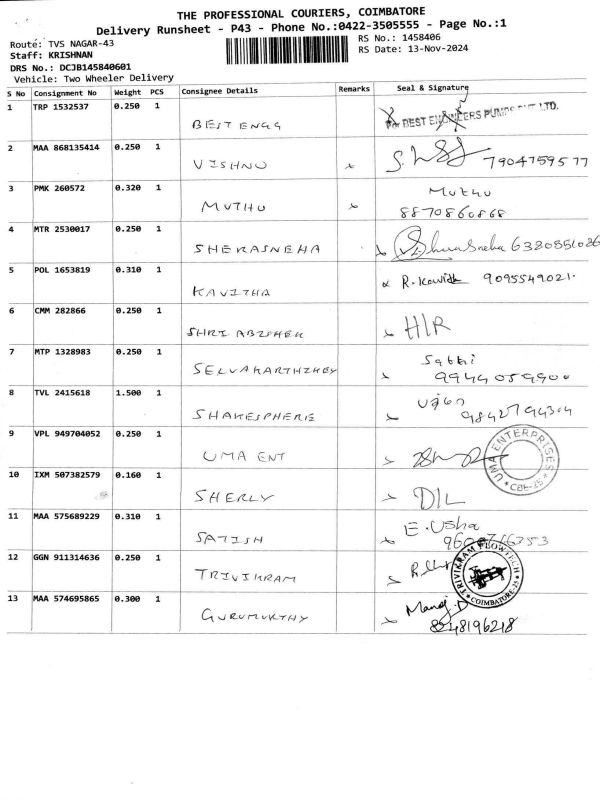 THE PROFESSIONAL COURIERS, COIMBATORE
Delivery Runsheet - P43 - Phone No.:0422-3505555 - Page No.:1
Route: TVS NAGAR-43
RS No.: 1458406
Staff: KRISHNAN
RS Date: 13-Nov-2024
DRS No.: DCJB145840601
Vehicle: Two Wheeler Delivery
S No Consignment No Weight PCS Consignee Details Remarks Seal & Signature
1 TRP 1532537 0.250 1 BEST ENGG For BEST ENGINEERS PUMPS PVT LTD.
2 MAA 868135414 0.250 1 VISHNU 7904759577
3 PMK 260572 0.320 1 MUTHU Muthu
8870860868
4 MTR 2530017 0.250 1 SHEKASNEHA 6380551086
5 POL 1653819 0.310 1 KAVITHA R. Kavitha 9095549021.
6 CMM 282866 0.250 1 SHRI ABISHEK HLR
7 MTP 1328983 0.250 1 SELVAKARTHIKEY Sakthi
9944059900
8 TVL 2415618 1.500 1 SHAKESPHERE 9842794304
9 VPL 949704052 0.250 1 UMA ENT UMA ENTERPRISES CBE-25
10 IXM 507382579 0.160 1 SHERLY DIL
11 MAA 575689229 0.310 1 SATISH E. Usha
12 GGN 911314636 0.250 1 TRIVIKRAM TRIVIKRAM FLOWTECH COIMBATORE-25
13 MAA 574695865 0.300 1 GURUMURTHY Manoj.D
8248196218